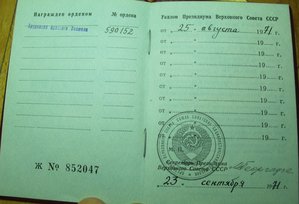 Награжден орденом № ордена
Трудового Красного Знамени 590152
Ж № 852047
Указом Президиума Верховного Совета СССР
от „ 25 „ августа 1971 г.
от „ „ 19 г.
от „ „ 19 г.
от „ „ 19 г.
от „ „ 19 г.
от „ „ 19 г.
от „ „ 19 г.
от „ „ 19 г.
М. П.
Секретарь Президиума
Верховного Совета СССР
23 сентября 1971 г.